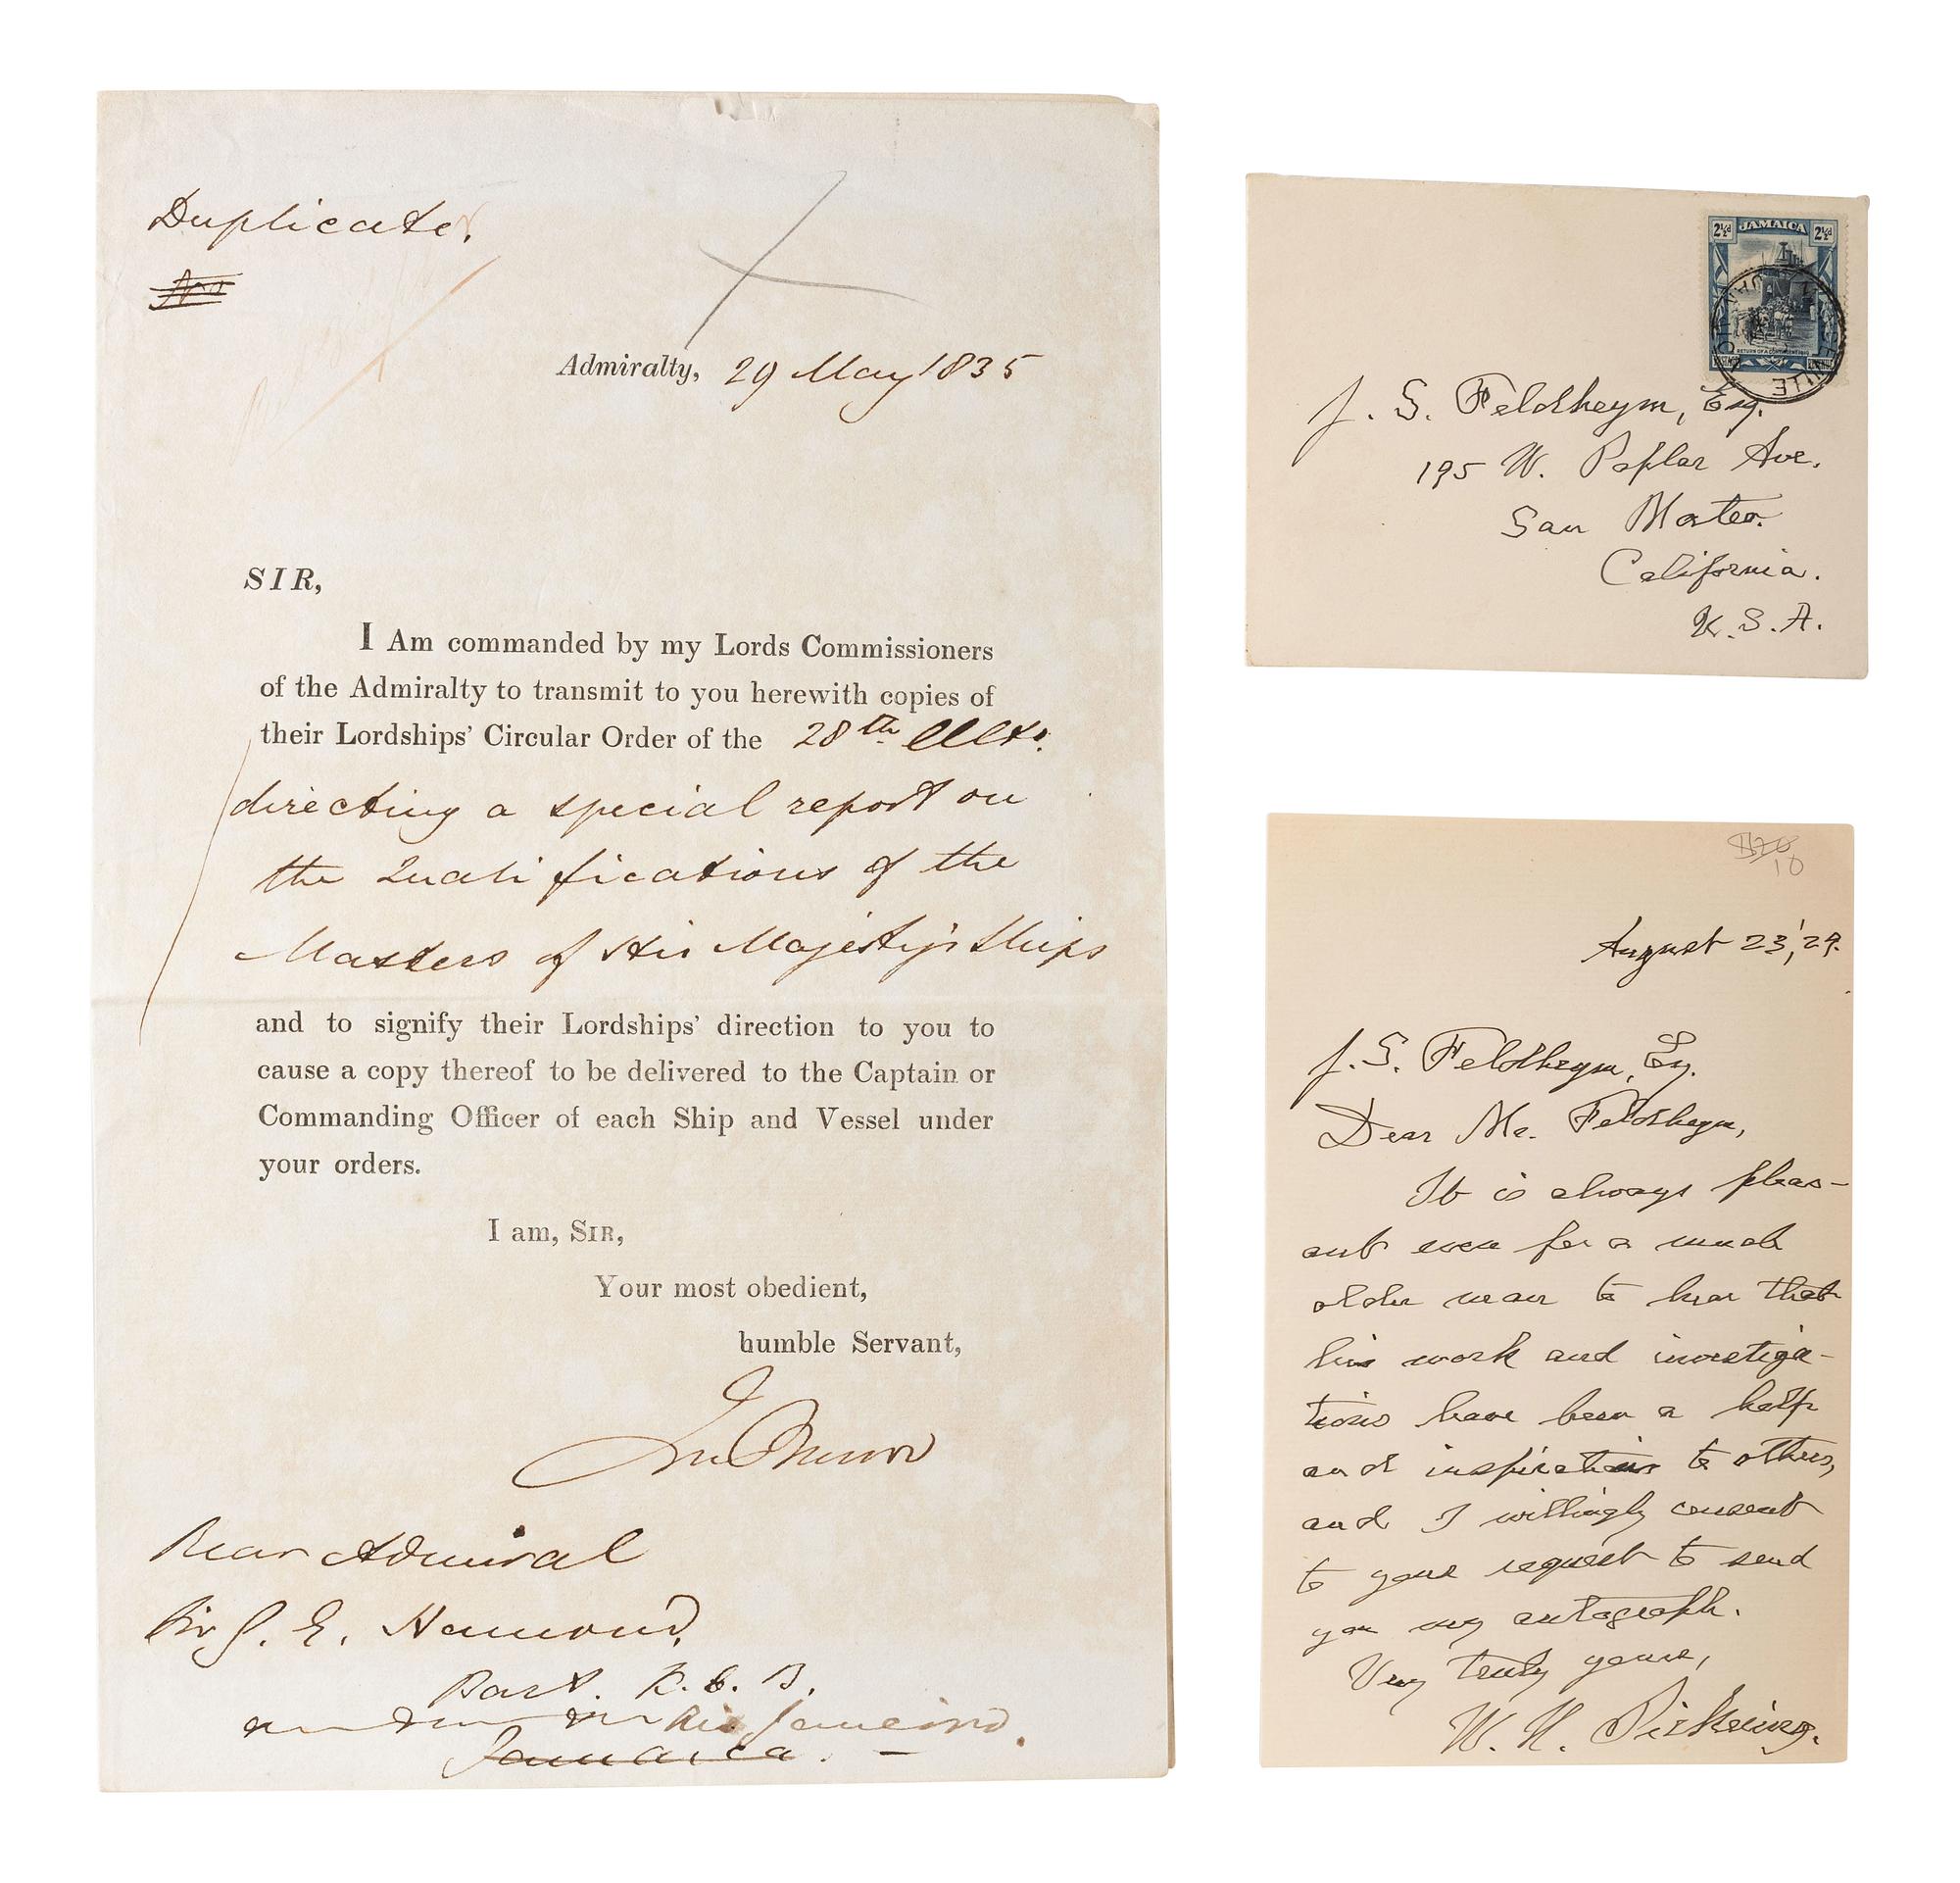 Duplicate.
Admiralty, 29 May 1835
SIR,
I Am commanded by my Lords Commissioners
of the Admiralty to transmit to you herewith copies of
their Lordships' Circular Order of the 28th Ulto.
directing a special report on
the Qualifications of the
Masters of His Majesty's Ships
and to signify their Lordships' direction to you to
cause a copy thereof to be delivered to the Captain or
Commanding Officer of each Ship and Vessel under
your orders.
I am, SIR,
Your most obedient,
humble Servant,
Rear Admiral
Sir G. E. Hamond,
Bart. K. C. B.
Rio Janeiro.
Jamaica.
2½d JAMAICA 2½d
RETURN OF A CONTINGENT 1919
J. S. Feldheym, Esq.
195 W. Poplar Ave.
San Mateo.
California.
U. S. A.
$20
10
August 23, '29.
J. S. Feldheym, Esq.
Dear Mr. Feldheym,
It is always pleas-
ant even for a much
older man to hear that
his work and investiga-
tions have been a help
and inspiration to others,
and I willingly consent
to your request to send
you my autograph.
Very truly yours,
W. H. Pickering.